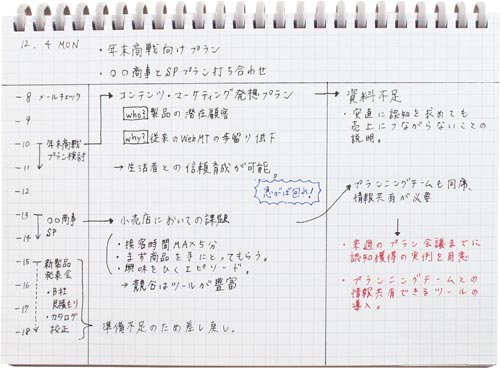 12. 4 MON
・年末商戦向けプラン
・〇〇商事とSPプラン打ち合わせ
8 メールチェック
9
10 年末商戦
プラン検討
11
12
13 〇〇商事
SP
14
15 新製品
発表会
16 ・B社
見積もり
17 ・カタログ
校正
18
コンテンツ・マーケティング発想プラン
who? 製品の潜在顧客
why? 従来のWebMTの歩留り低下
→生活者との信頼育成が可能。
急がば回れ!
小売店においての課題
・接客時間MAX5分
・まず商品を手にとってもらう。
・興味をひくエピソード。
→競合はツールが豊富
準備不足のため差し戻し。
資料不足
・安直に認知を求めても
売上につながらないことの
説明。
プランニングチームも同席、
情報共有が必要
・来週のプラン会議までに
認知獲得の実例を用意
・プランニングチームとの
情報共有できるツールの
導入。